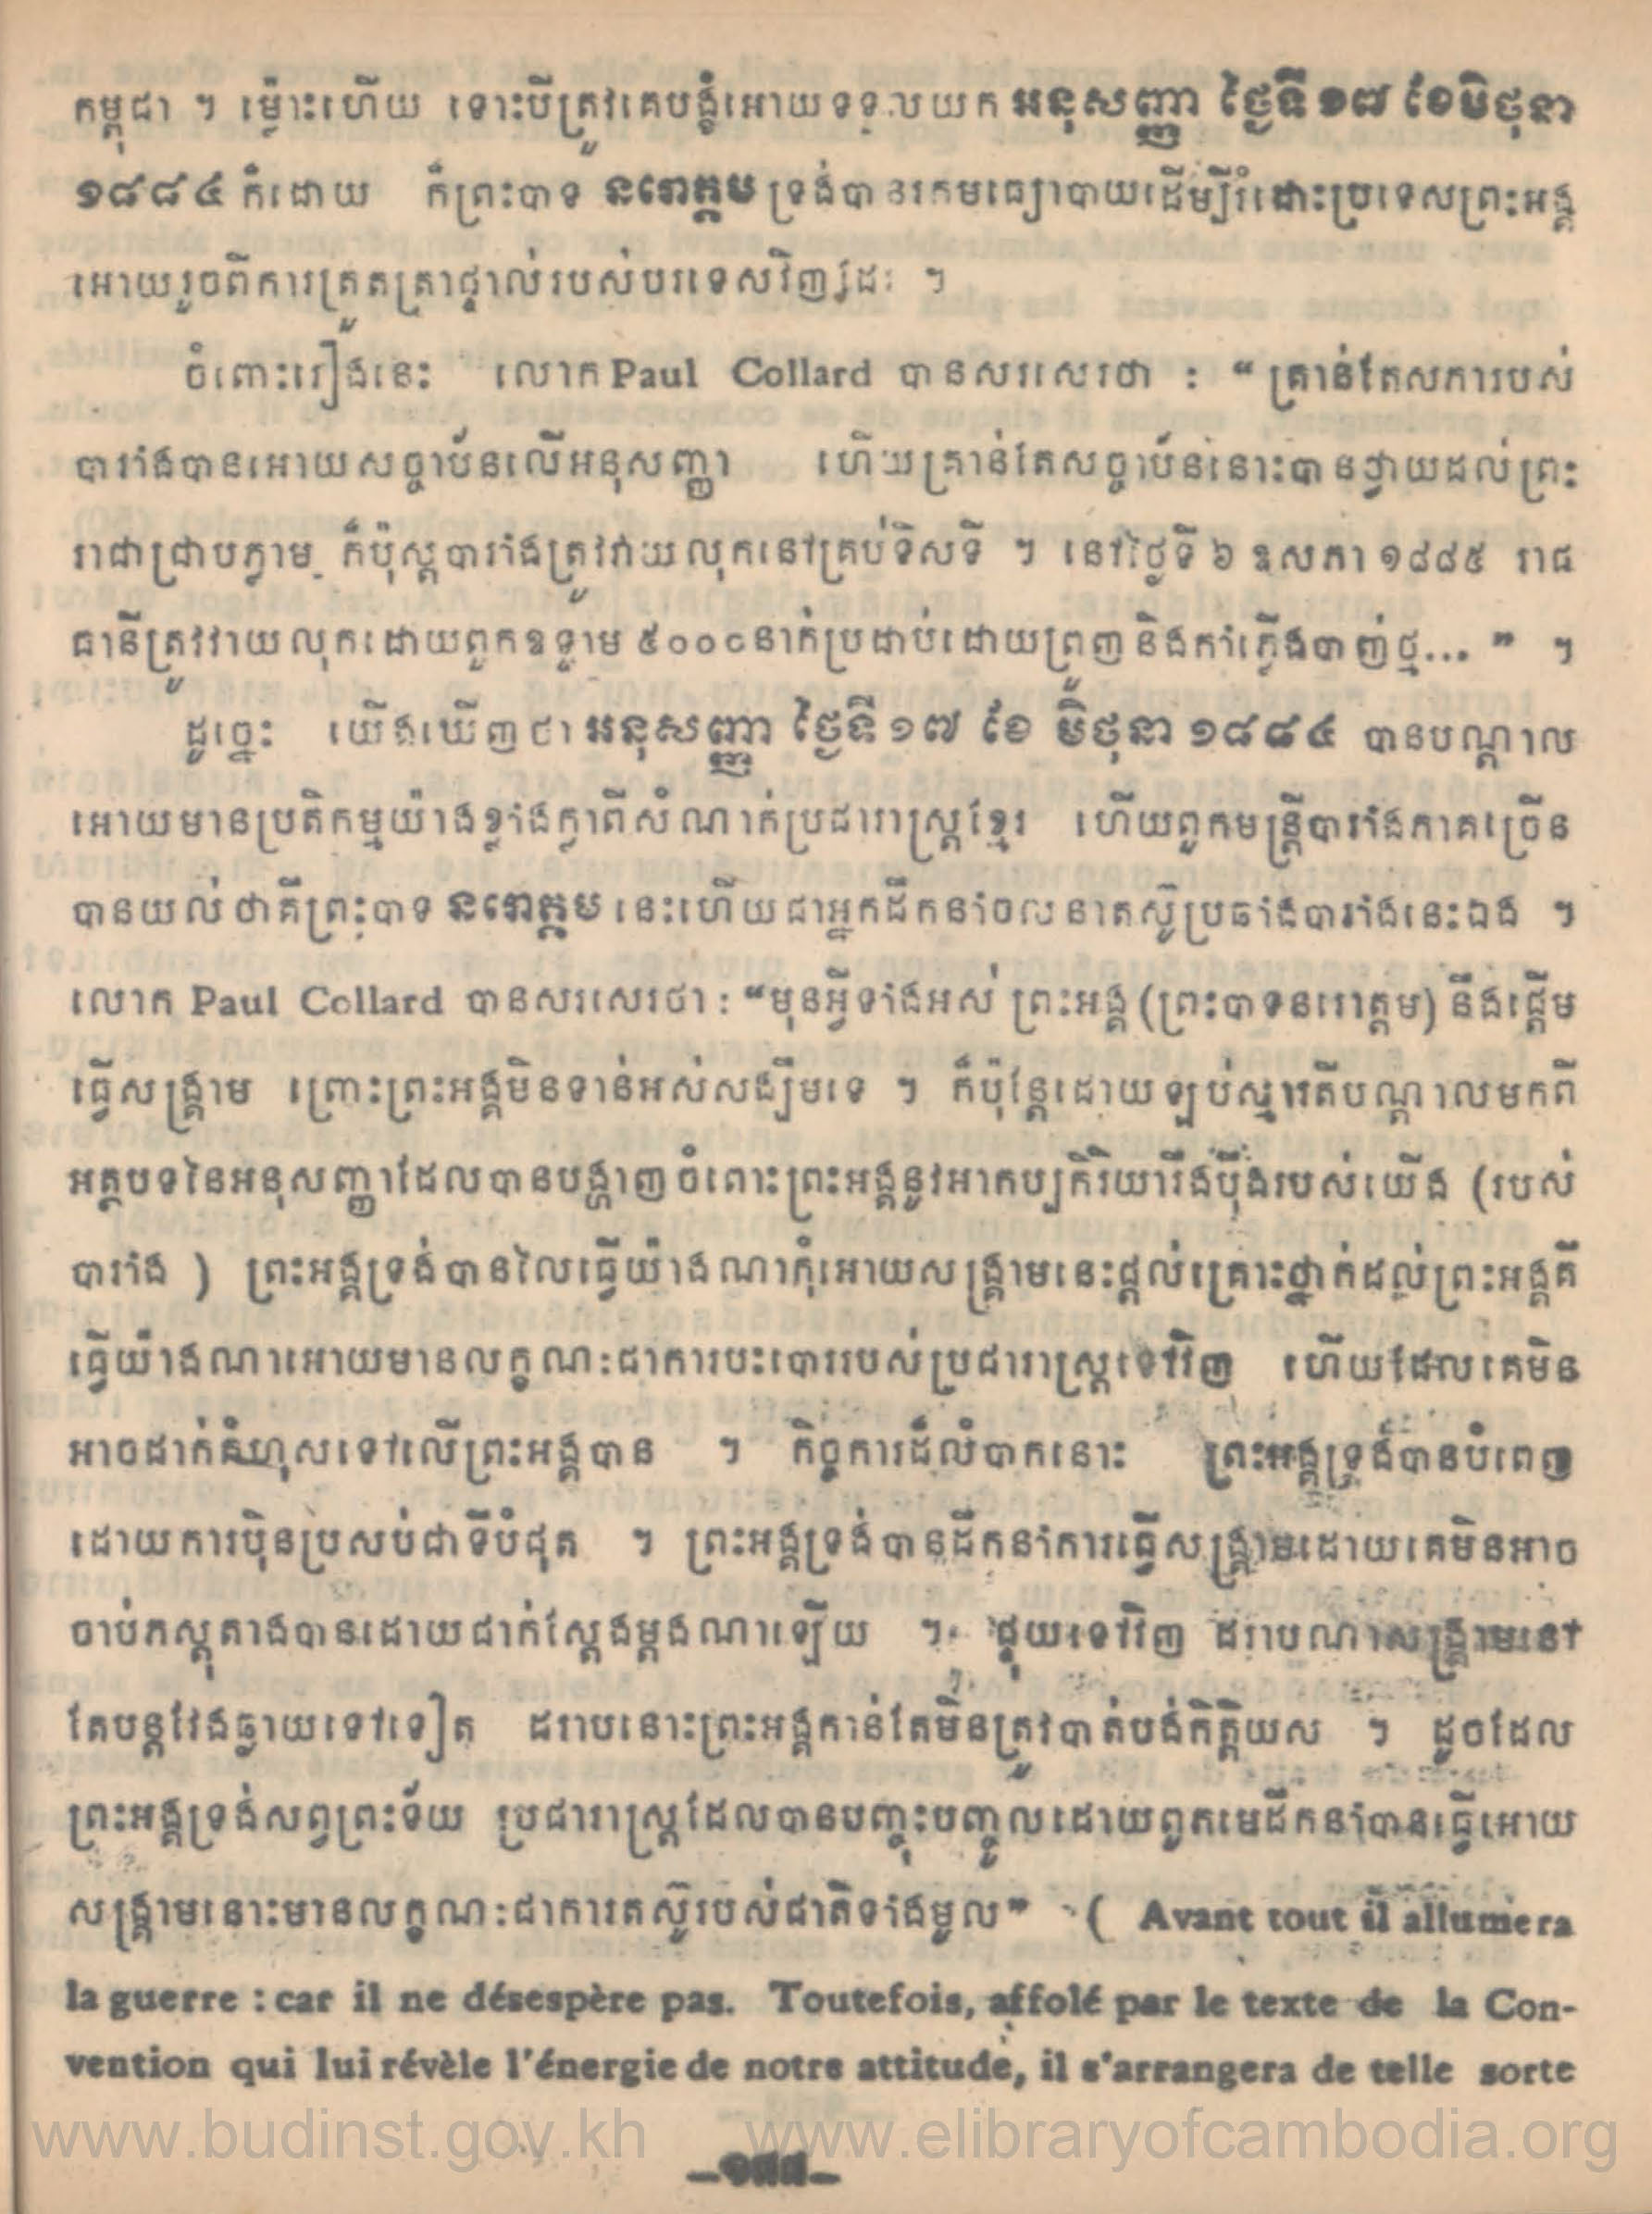 កម្ពុជា ។ ម្ល៉ោះហើយ ទោះបីត្រូវគេបង្ខំអោយទទួលយក អនុសញ្ញា ថ្ងៃទី ១៧ ខែមិថុនា
១៨៨៤ ក៏ដោយ ក៏ព្រះបាទ នរោត្តម ទ្រង់បានរកមធ្យោបាយដើម្បីរំដោះប្រទេសព្រះអង្គ
អោយរួចពីការត្រួតត្រាផ្ទាល់របស់បរទេសវិញដែរ ។
ចំពោះរឿងនេះ លោក Paul Collard បានសរសេរថា : “ គ្រាន់តែសភារបស់
បារាំងបានអោយសច្ចាប័នលើអនុសញ្ញា ហើយគ្រាន់តែសច្ចាប័ននោះបានថ្វាយដល់ព្រះ
រាជាជ្រាបភ្លាម ក៏ប៉ុស្តបារាំងត្រូវវាយលុកនៅគ្រប់ទិសទី ។ នៅថ្ងៃទី ៦ ឧសភា ១៨៨៥ រាជ
ធានីត្រូវវាយលុកដោយពួកឧទ្ទាម ៥០០០នាក់ប្រដាប់ដោយព្រួញនិងកាំភ្លើងបាញ់ថ្ម... ” ។
ដូច្នេះ យើងឃើញថា អនុសញ្ញា ថ្ងៃទី ១៧ ខែ មិថុនា ១៨៨៤ បានបណ្តាល
អោយមានប្រតិកម្មយ៉ាងខ្លាំងក្លាពីសំណាក់ប្រជារាស្ត្រខ្មែរ ហើយពួកមន្ត្រីបារាំងភាគច្រើន
បានយល់ថាគឺព្រះបាទ នរោត្តម នេះហើយជាអ្នកដឹកនាំចលនាតស៊ូប្រឆាំងបារាំងនេះឯង ។
លោក Paul Collard បានសរសេរថា : “មុនអ្វីទាំងអស់ ព្រះអង្គ (ព្រះបាទនរោត្តម) នឹងផ្តើម
ធ្វើសង្គ្រាម ព្រោះព្រះអង្គមិនទាន់អស់សង្ឃឹមទេ ។ ក៏ប៉ុន្តែដោយឡប់ស្មារតីបណ្តាលមកពី
អត្ថបទនៃអនុសញ្ញាដែលបានបង្ហាញចំពោះព្រះអង្គនូវអាកប្បកិរិយារឹងប៉ឹងរបស់យើង (របស់
បារាំង ) ព្រះអង្គទ្រង់បានលៃធ្វើយ៉ាងណាកុំអោយសង្គ្រាមនេះផ្តល់គ្រោះថ្នាក់ដល់ព្រះអង្គគឺ
ធ្វើយ៉ាងណាអោយមានលក្ខណៈជាការបះបោររបស់ប្រជារាស្ត្រទៅវិញ ហើយដែលគេមិន
អាចដាក់កំហុសទៅលើព្រះអង្គបាន ។ កិច្ចការដ៏លំបាកនោះ ព្រះអង្គទ្រង់បានបំពេញ
ដោយការប៉ិនប្រសប់ជាទីបំផុត ។ ព្រះអង្គទ្រង់បានដឹកនាំការធ្វើសង្គ្រាមដោយគេមិនអាច
ចាប់ភស្តុតាងបានដោយជាក់ស្តែងម្តងណាឡើយ ។ ផ្ទុយទៅវិញ ដរាបណាសង្គ្រាមនៅ
តែបន្តវែងឆ្ងាយទៅទៀត ដរាបនោះព្រះអង្គកាន់តែមិនត្រូវបាត់បង់កិត្តិយស ។ ដូចដែល
ព្រះអង្គទ្រង់សព្វព្រះទ័យ ប្រជារាស្ត្រដែលបានបញ្ចុះបញ្ចូលដោយពួកមេដឹកនាំបានធ្វើអោយ
សង្គ្រាមនោះមានលក្ខណៈជាការតស៊ូរបស់ជាតិទាំងមូល” ( Avant tout il allumera
la guerre : car il ne désespère pas. Toutefois, affolé par le texte de la Con-
vention qui lui révèle l'énergie de notre attitude, il s'arrangera de telle sorte
www.budinst.gov.kh www.elibraryofcambodia.org